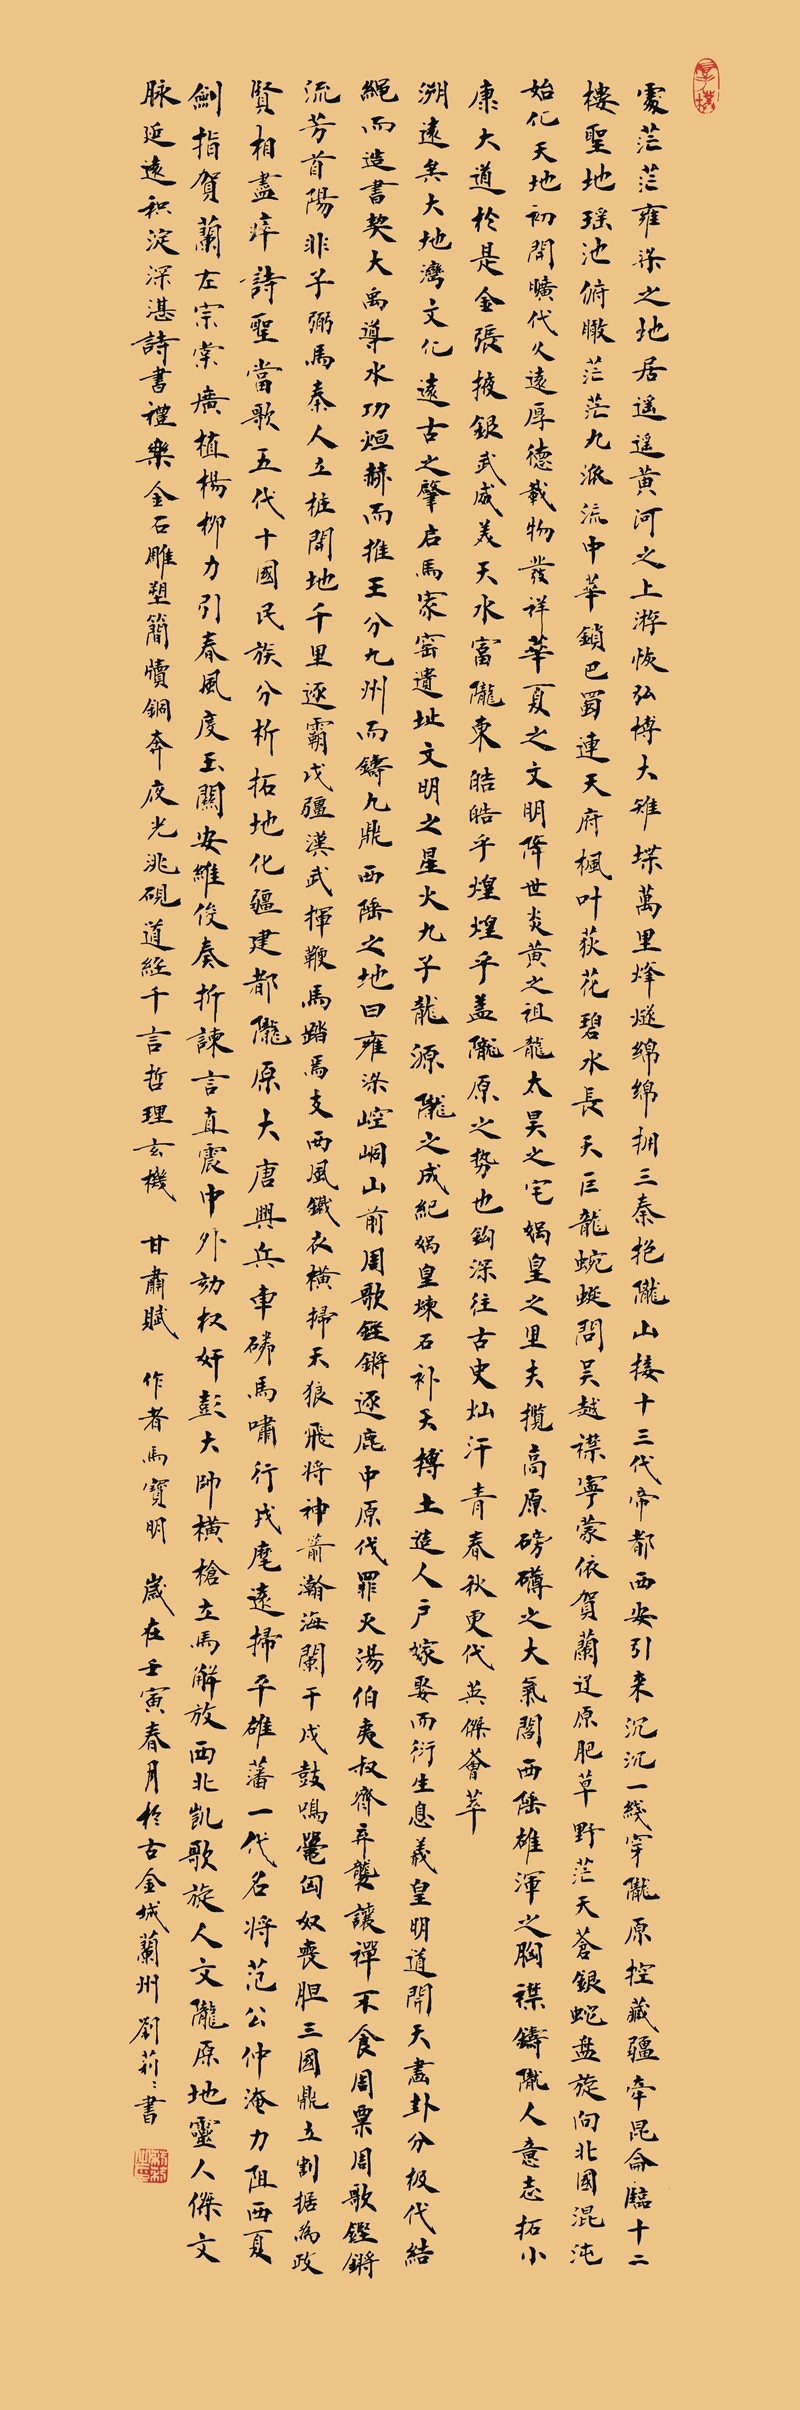 處茫茫雍梁之地居遥遥黄河之上游恢弘博大雉堞萬里烽燧綿綿拥三秦挹隴山接十三代帝都西安引来沉沉一綫穿隴原控藏疆牵昆侖臨十二
樓聖地瑶池俯瞰茫茫九派流中華鎖巴蜀連天府楓叶荻花碧水長天巨龍蜿蜒問吴越襟寧蒙依賀蘭辽原肥草野茫天蒼銀蛇盘旋向北國混沌
始化天地初開曠代久遠厚德載物發祥華夏之文明降世炎黄之祖龍太昊之宅媧皇之里夫攬高原磅礴之大氣閤西陲雄渾之胸襟鑄隴人意志拓小
康大道於是金張掖銀武威美天水富隴東皓皓乎煌煌乎盖隴原之势也鈎深往古史灿汗青春秋更代英傑薈萃
溯遠矣大地灣文化遠古之肇启馬家窑遺址文明之星火九子龍源隴之成紀媧皇煉石补天摶土造人户嫁娶而衍生息羲皇明道開天畫卦分极代結
繩而造書契大禹導水功烜赫而推王分九州而鑄九鼎西陲之地曰雍梁崆峒山前周歌鏗鏘逐鹿中原伐罪灭湯伯夷叔齊辛襲讓禪不食周粟周歌鏗鏘
流芳首陽非子弼馬秦人立桩開地千里逐霸戍疆漢武揮鞭馬踏焉支西風鐵衣横掃天狼飛將神箭瀚海闌干戍鼓鳴鼍匈奴喪胆三國鼎立割据為政
賢相盡瘁詩聖當歌五代十國民族分析拓地化疆建都隴原大唐興兵車磷馬嘯行戍麾遠掃平雄藩一代名将范公仲淹力阻西夏
劍指賀蘭左宗棠廣植楊柳力引春風度玉關安維俊奏折諫言直震中外劾权奸彭大帥横槍立馬解放西北凯歌旋人文隴原地靈人傑文
脉延遠积淀深湛詩書禮樂金石雕塑簡牘銅奔夜光洮硯道經千言哲理玄機 甘肅賦 作者馬寶明 歲在壬寅春月於古金城蘭州劉莉莉書